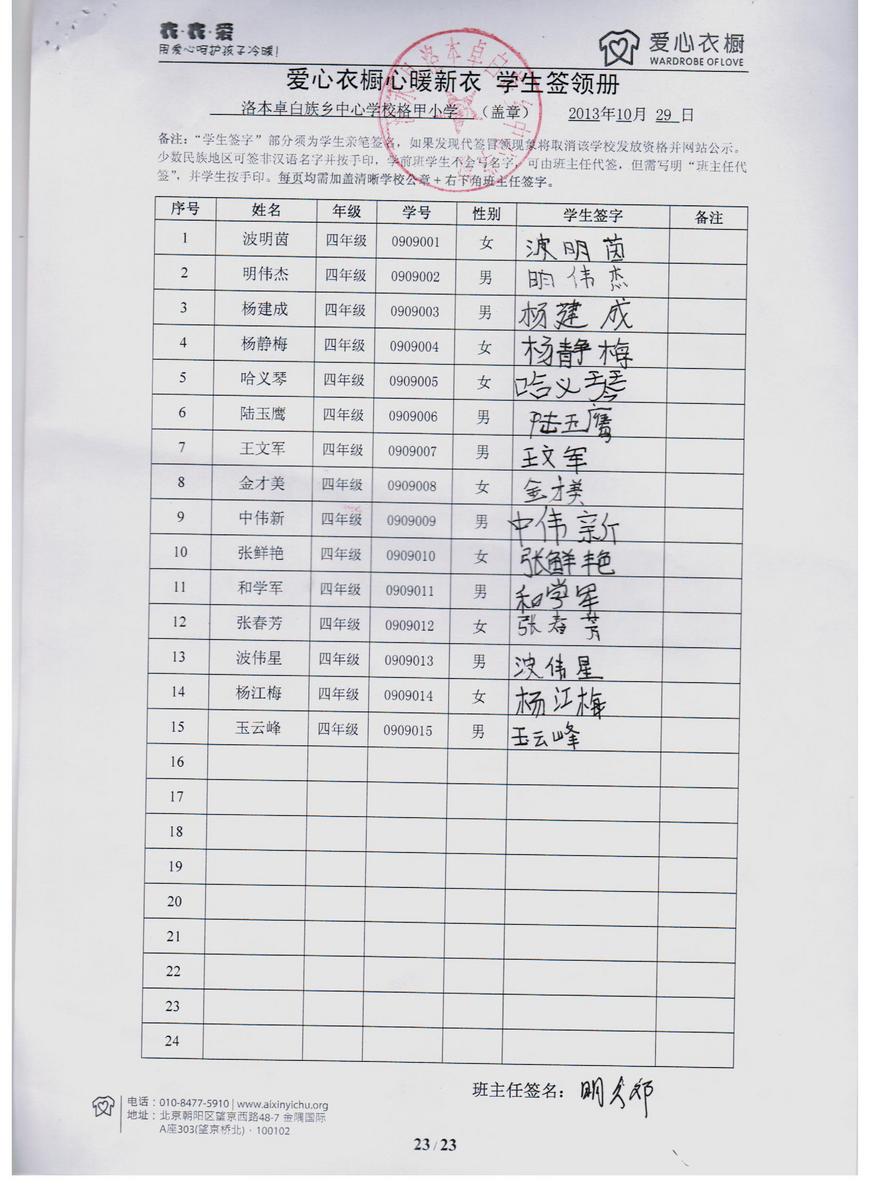 衣·衣·爱
用爱心呵护孩子冷暖!
爱心衣橱
WARDROBE OF LOVE
爱心衣橱心暖新衣 学生签领册
洛本卓白族乡中心学校格甲小学 (盖章) 2013年10月 29 日
备注:“学生签字”部分须为学生亲笔签名,如果发现代签冒领现象将取消该学校发放资格并网站公示。
少数民族地区可签非汉语名字并按手印,学前班学生不会写名字,可由班主任代签,但需写明“班主任代
签”,并学生按手印。每页均需加盖清晰学校公章+右下角班主任签字。
序号 姓名 年级 学号 性别 学生签字 备注
1 波明茵 四年级 0909001 女 波明茵
2 明伟杰 四年级 0909002 男 明伟杰
3 杨建成 四年级 0909003 男 杨建成
4 杨静梅 四年级 0909004 女 杨静梅
5 哈义琴 四年级 0909005 女 哈义琴
6 陆玉鹰 四年级 0909006 男 陆玉鹰
7 王文军 四年级 0909007 男 王文军
8 金才美 四年级 0909008 女 金才美
9 中伟新 四年级 0909009 男 中伟新
10 张鲜艳 四年级 0909010 女 张鲜艳
11 和学军 四年级 0909011 男 和学军
12 张春芳 四年级 0909012 女 张春芳
13 波伟星 四年级 0909013 男 波伟星
14 杨江梅 四年级 0909014 女 杨江梅
15 玉云峰 四年级 0909015 男 玉云峰
16
17
18
19
20
21
22
23
24
班主任签名:
电话:010-8477-5910 | www.aixinyichu.org
地址:北京朝阳区望京西路48-7 金隅国际
A座303(望京桥北)·100102
23 / 23